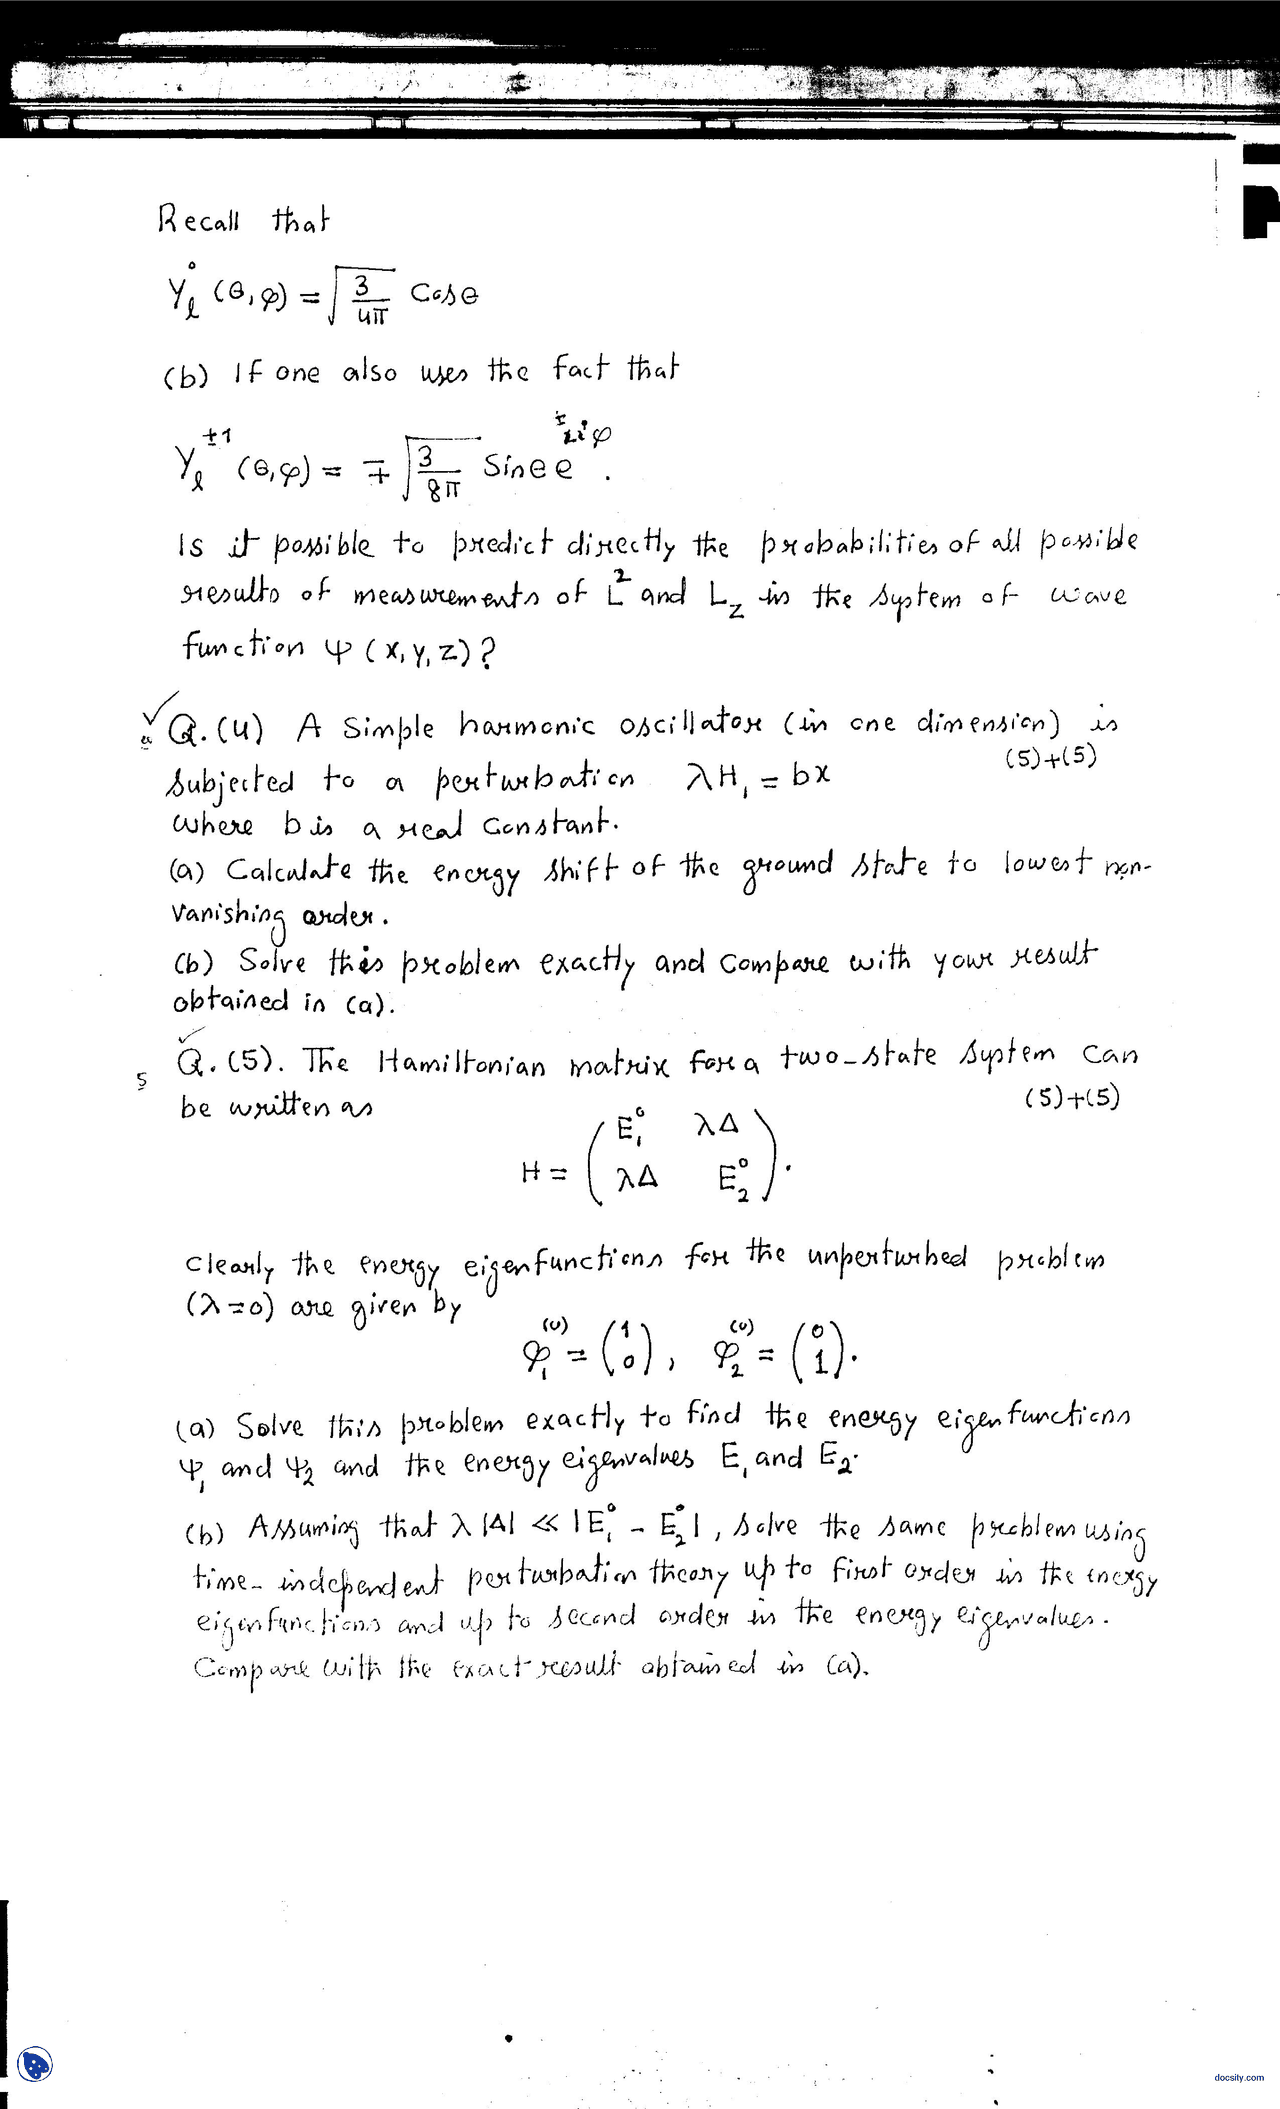 Recall that
Y_ℓ^0 (θ, φ) = √(3/4π) Cosθ
(b) If one also uses the fact that
Y_ℓ^±1 (θ, φ) = ∓ √(3/8π) Sinθ e^(±iφ).
Is it possible to predict directly the probabilities of all possible
results of measurements of L^2 and L_z in the system of wave
function ψ (x, y, z)?
Q. (4) A Simple harmonic oscillator (in one dimension) is
(5)+(5)
subjected to a perturbation λH_1 = bx
where b is a real Constant.
(a) Calculate the energy shift of the ground state to lowest non-
vanishing order.
(b) Solve this problem exactly and Compare with your result
obtained in (a).
5
Q. (5). The Hamiltonian matrix for a two-state system can
(5)+(5)
be written as
H = ( E_1^0 λΔ
λΔ E_2^0 ).
Clearly the energy eigenfunctions for the unperturbed problem
(λ=0) are given by
φ_1^(0) = (1 0), φ_2^(0) = (0 1).
(a) Solve this problem exactly to find the energy eigenfunctions
ψ_1 and ψ_2 and the energy eigenvalues E_1 and E_2.
(b) Assuming that λ|Δ| ≪ |E_1^0 - E_2^0|, solve the same problem using
time-independent perturbation theory up to first order in the energy
eigenfunctions and up to second order in the energy eigenvalues.
Compare with the exact result obtained in (a).
docsity.com